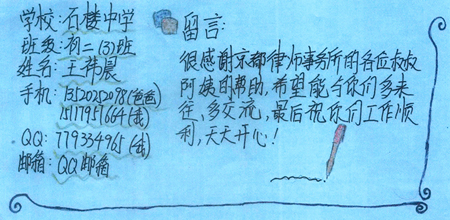 学校:石楼中学
班级:初二(3)班
姓名:王祎晨
手机:13520252098(爸爸)
15117951664(我)
QQ:779334965(我)
邮箱:QQ邮箱
留言:
很感谢京都律师事务所的各位叔叔
阿姨的帮助,希望能与你们多来
往、多交流,最后祝你们工作顺
利,天天开心!